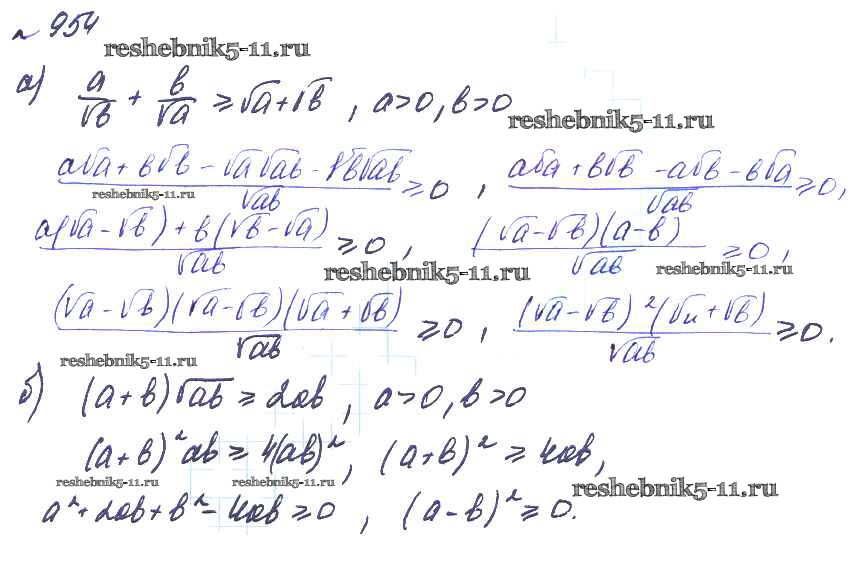 № 954
reshebnik5-11.ru
а) a/√b + b/√a ≥ √a + √b , a>0, b>0
reshebnik5-11.ru
(a√a + b√b − √a√ab − √b√ab)/√ab ≥ 0 , (a√a + b√b − a√b − b√a)/√ab ≥ 0,
reshebnik5-11.ru
(a(√a − √b) + b(√b − √a))/√ab ≥ 0 , ((√a − √b)(a − b))/√ab ≥ 0,
reshebnik5-11.ru reshebnik5-11.ru
((√a − √b)(√a − √b)(√a + √b))/√ab ≥ 0 , ((√a − √b)²(√a + √b))/√ab ≥ 0.
reshebnik5-11.ru
б) (a + b)√ab ≥ 2ab , a>0, b>0
(a + b)²ab ≥ 4(ab)², (a+b)² ≥ 4ab,
reshebnik5-11.ru reshebnik5-11.ru reshebnik5-11.ru
a² + 2ab + b² − 4ab ≥ 0 , (a − b)² ≥ 0.